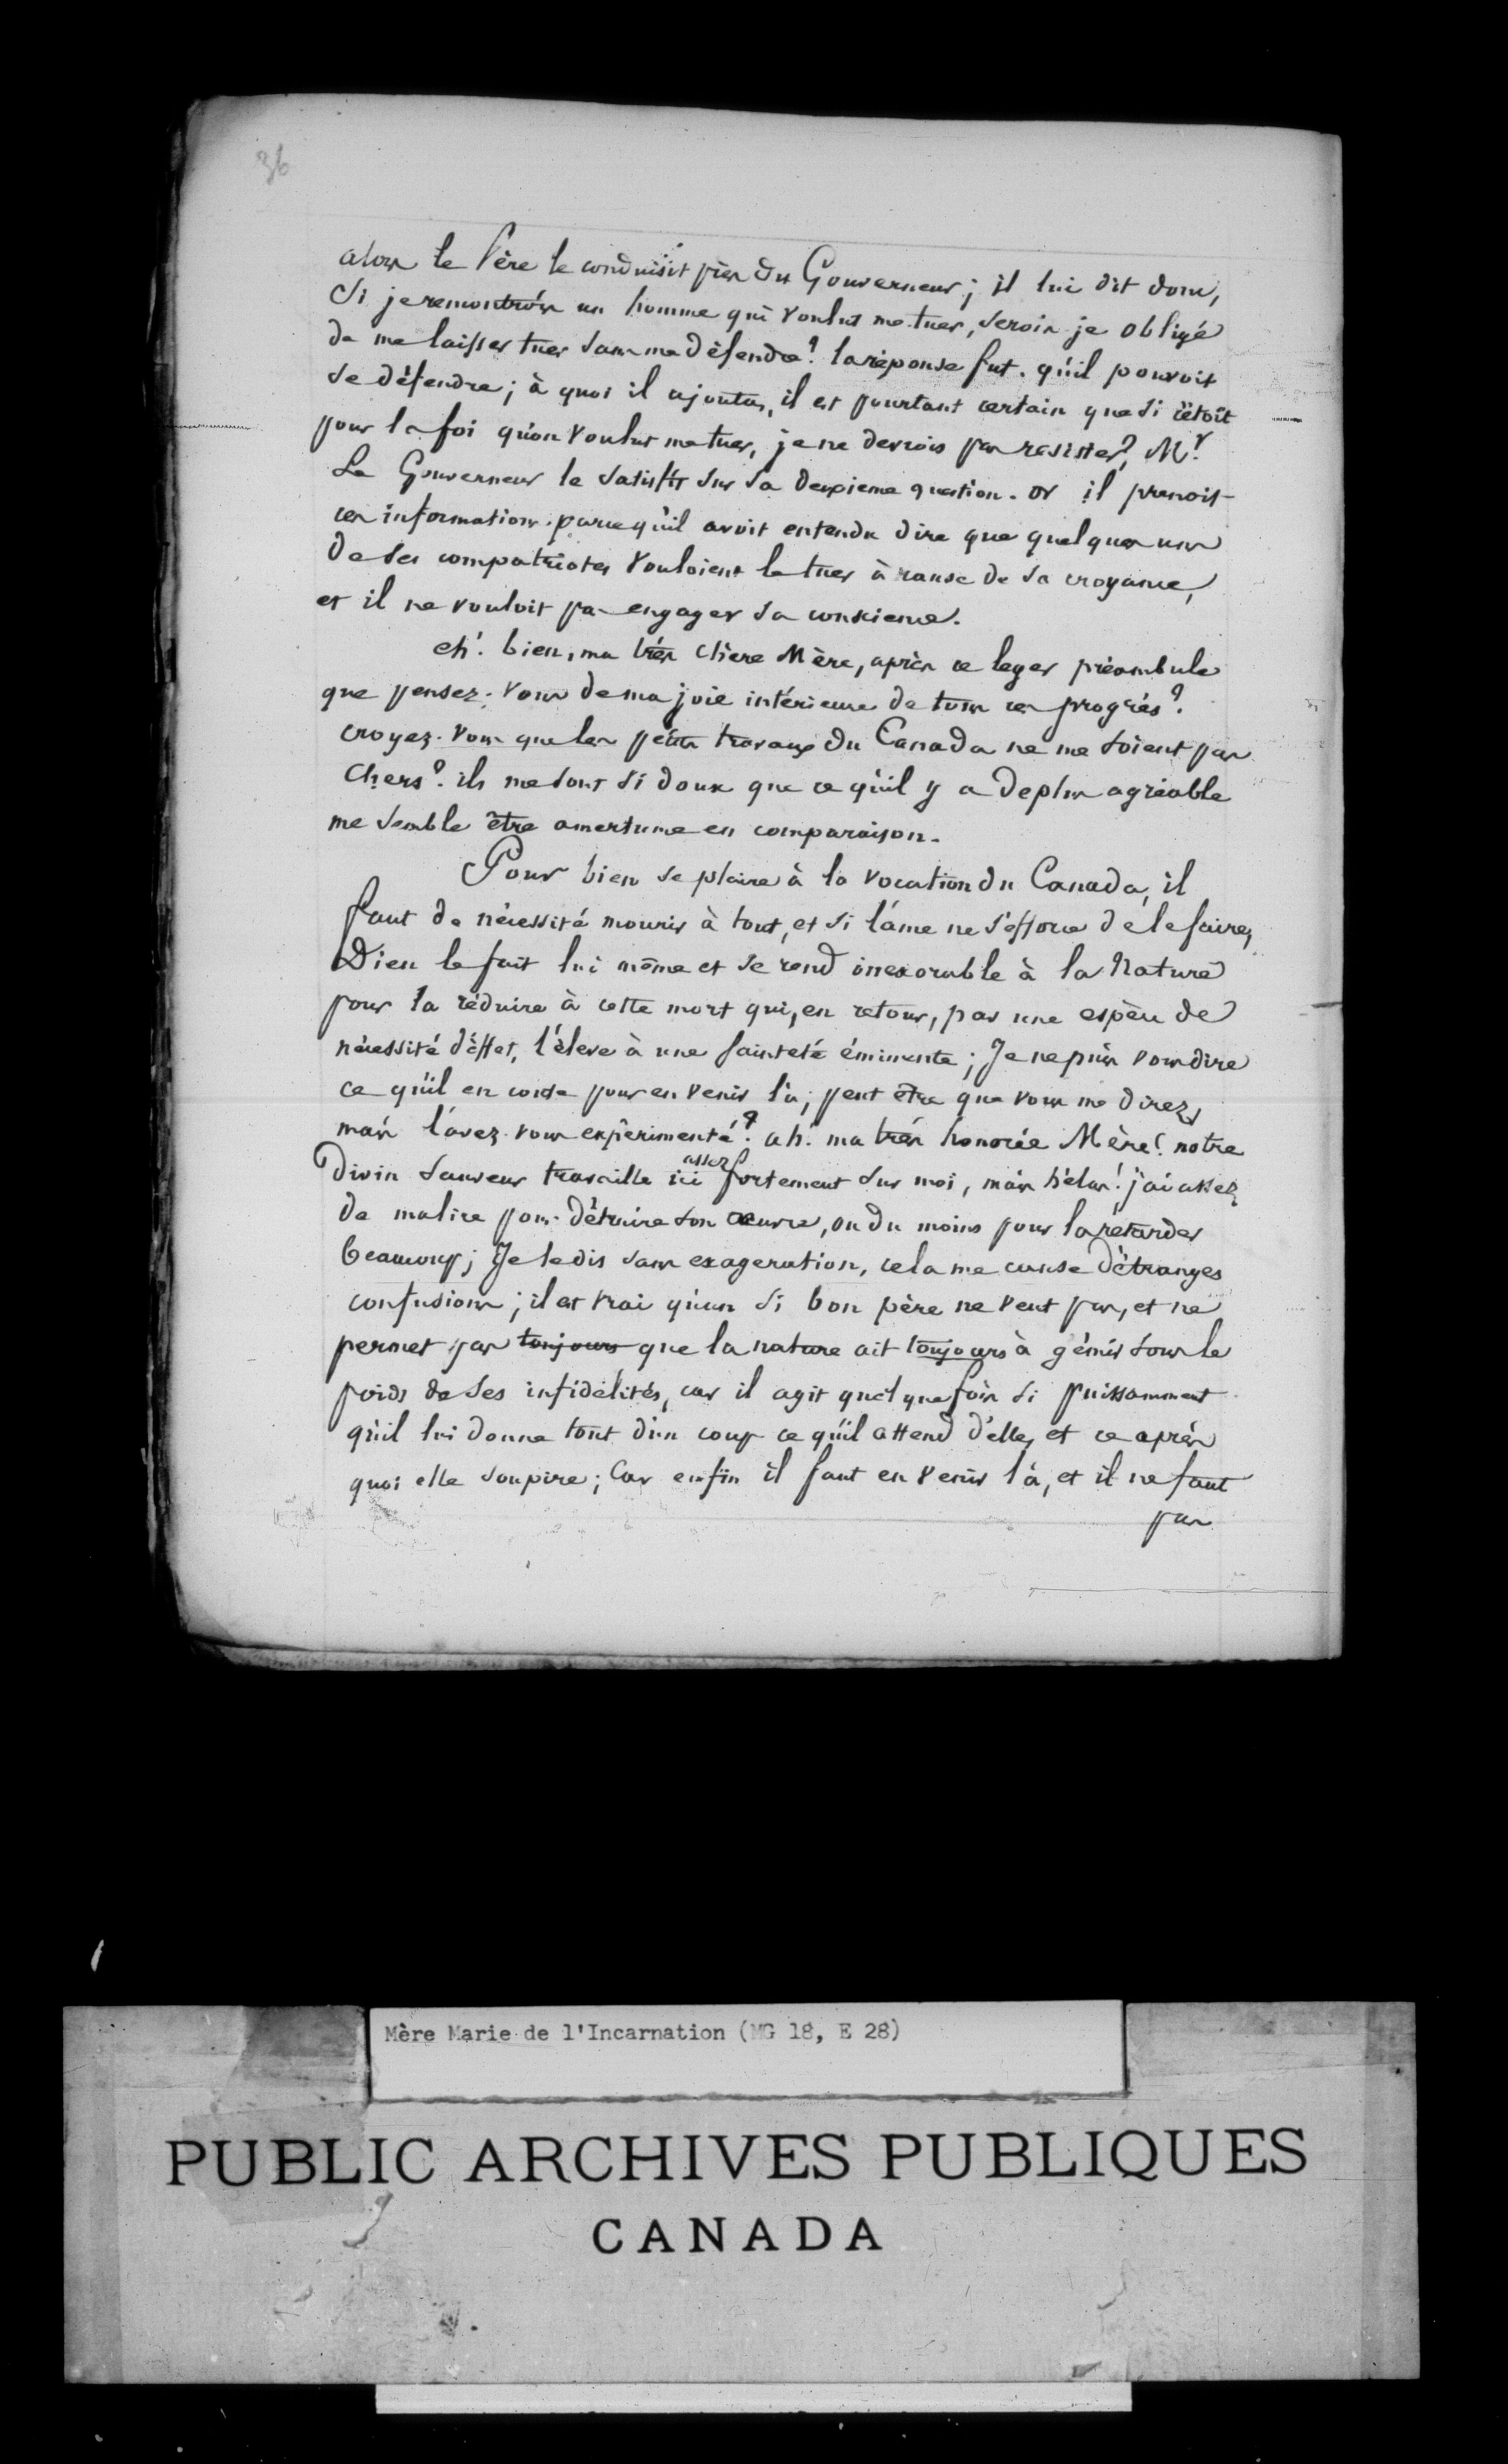 36
alors le Père le conduisit près du Gouverneur; il lui dit donc,
Si je remontrois un homme qui voulut me tuer, serois je obligé
de me laisser tuer sans me défendre? la réponse fut. qu'il pouvoit
se défendre; à quoi il ajouta, il est pourtant certain que si c'étoit
pour la foi qu'on voulut me tuer, je ne devrois pas resister? Mr.
Le Gouverneur le satisfit sur sa deuxieme question. or il prenoit
ces informations parcequ'il avoit entendu dire que quelques uns
de ses compatriotes vouloient le tuer à cause de sa croyance,
et il ne vouloit pas engager sa conscience.
eh! bien, ma très chère Mère, après ce leger préambule
que pensez-vous de ma joie intérieure de tous ces progrés?
croyez-vous que les petits travaux du Canada ne me soient pas
chers? ils me sont si doux que ce qu'il y a de plus agréable
me semble être amertume en comparaison.
Pour bien se plaire à la vocation du Canada, il
faut de nécessité mourir à tout, et si l'âme ne s'efforce de le faire,
Dieu le fait lui même et se rend inexorable à la Nature
pour la réduire à cette mort qui, en retour, par une espèce de
nécessité d'effet, l'éleve à une sainteté éminente; Je ne puis vous dire
ce qu'il en coute pour en venir là; peut être que vous me direz,
mais l'avez-vous expérimenté? ah! ma très honorée Mère! notre
Divin Sauveur travaille ici assez fortement sur moi, mais hélas! j'ai assez
de malice pour détruire son œuvre, ou du moins pour la retarder
beaucoup; Je le dis sans exageration, cela me cause d'étranges
confusions; il est vrai qu'un si bon père ne veut pas, et ne
permet pas toujours que la nature ait toujours à gémir sous le
poids de ses infidélités, car il agit quelquefois si puissamment
qu'il lui donne tout d'un coup ce qu'il attend d'elle, et ce après
quoi elle soupire; Car enfin il faut en venir là, et il ne faut
pas
Mère Marie de l'Incarnation (MG 18, E 28)
PUBLIC ARCHIVES PUBLIQUES
CANADA